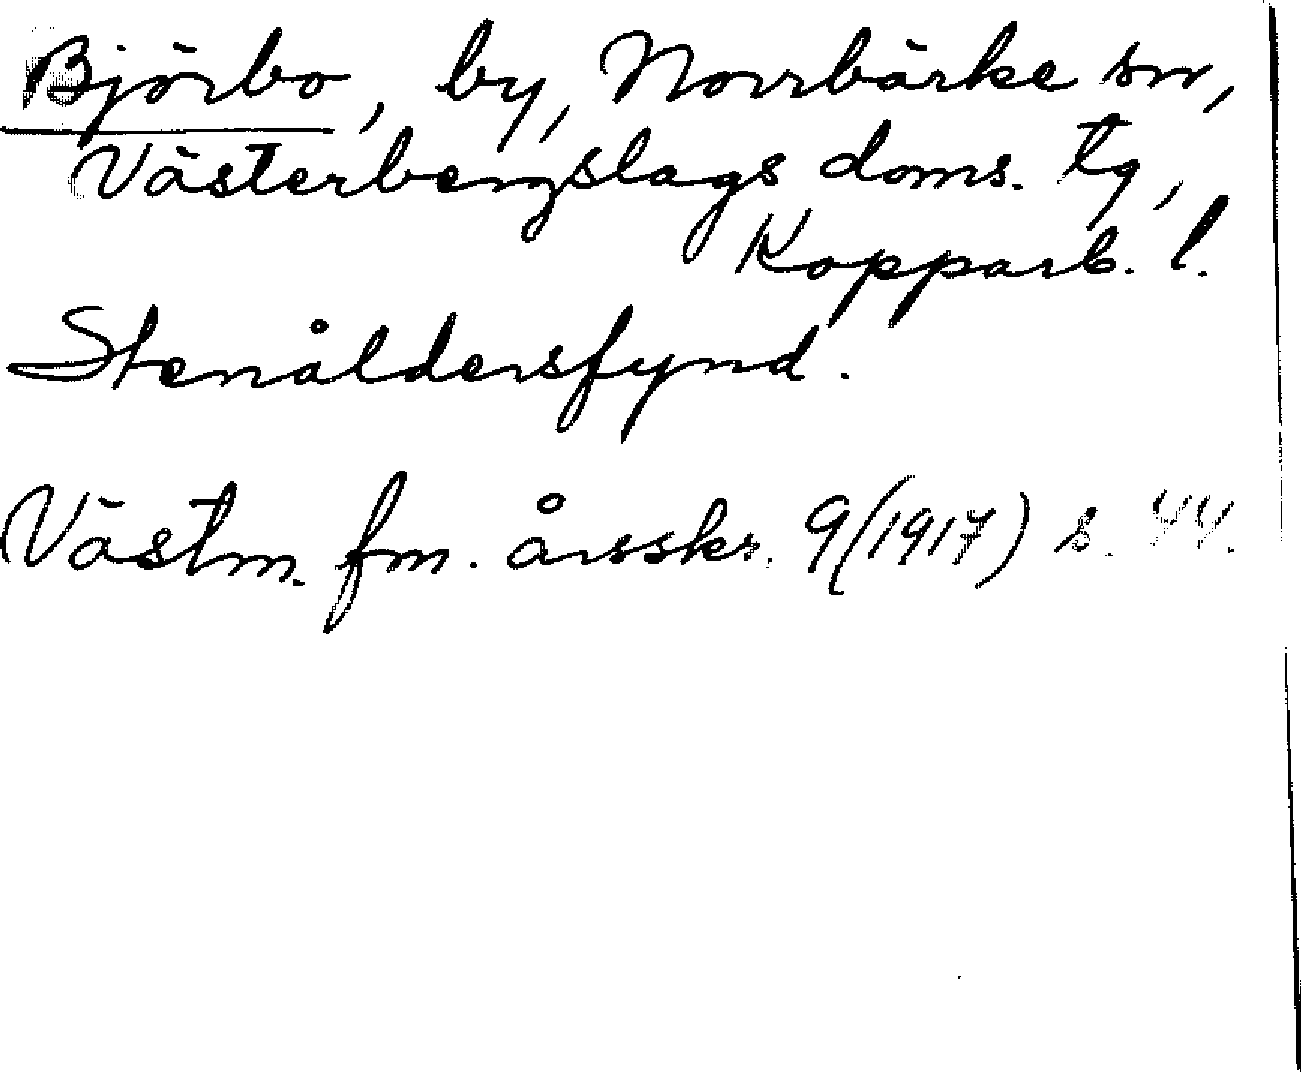 Björbo, by, Norrbärke sn,
Västerbergslags doms. tg,
Kopparb. l.
Stenåldersfynd.
Västm. fm. årsskr. 9(1917) s. 44.